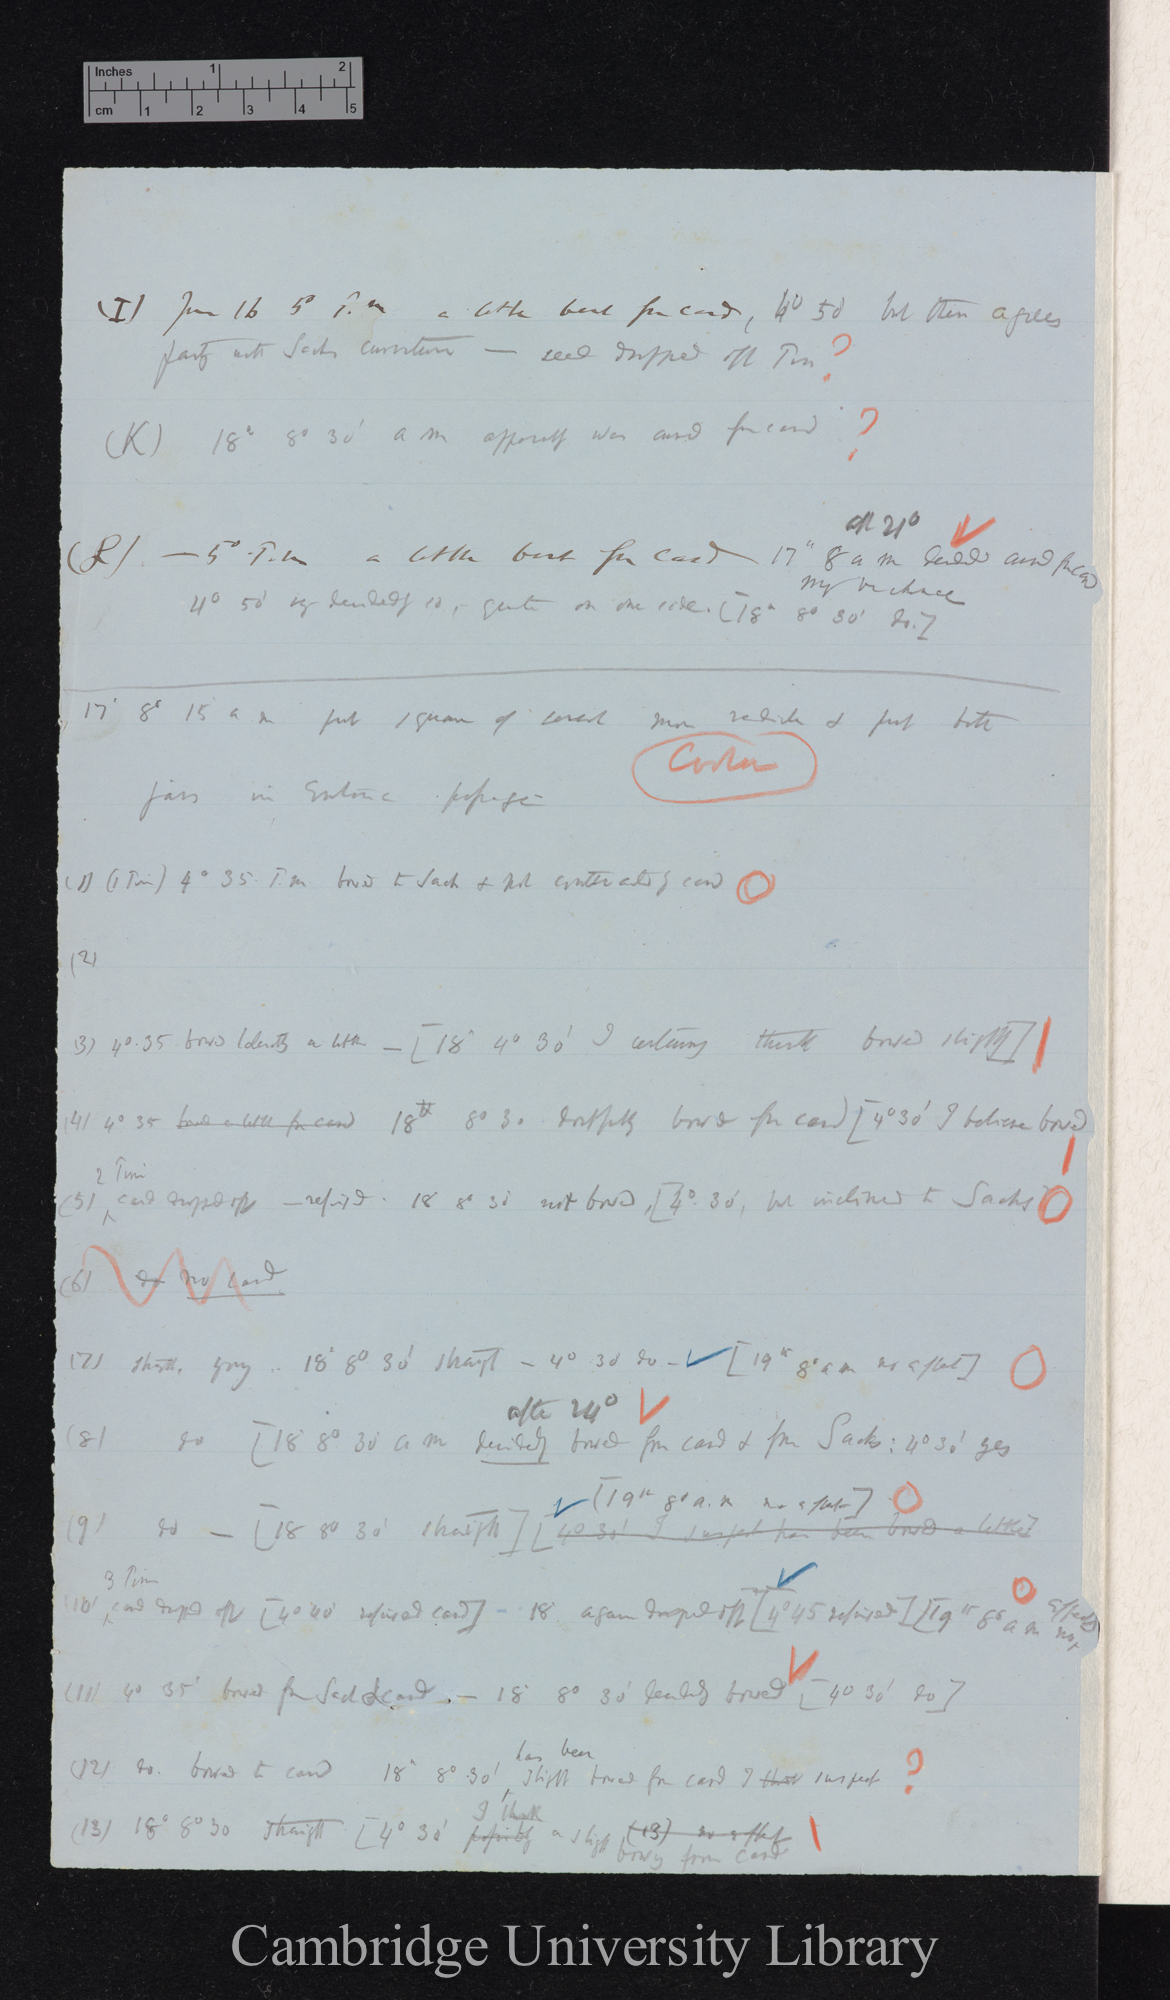 Inches 1 2
cm 1 2 3 4 5
(I) June 16 5° P.m a little bent from card, 4° 50' but then agrees
partly with Sachs curvature — seed dropped off Pin ?
(K) 18th 8° 30' a m apparently was curved from card ?
after 21° ✓
(L) — 5° P.m a little bent from card — 17th 8 a m decidedly curved from card
my
4° 50' very decidedly so, — quite on one side. [18th 8° 30' do.]
17th 8° 15 a m put square of card more radicles & put both
jars in
Cooler
(1) (1 Pin) 4° 35 P.m bowed to Sachs & not card O
(2)
(3) 4° 35 bowed a little — [18th 4° 30' I certainly think bowed slightly] |
(4) 4° 35 bowed a little from card 18th 8° 30 doubtfully bowed from card [4° 30' I believe bowed |
2 Pins
(5) card dropped off — refixed. 18 8° 30 not bowed, [4° 30', but inclined to Sachs] O
(6) do no card
(7) 18th 8° 30' straight — 4° 30 do — ✓ [19th 8° a m no effect] O
after 24° ✓
(8) do [18th 8° 30' a m decidedly bowed from card & from Sachs: 4° 30' yes
✓ [19th 8° a.m no effect] O
(9) do — [18 8° 30' straight] [4° 30' I suspect has been bowed a little]
3 Pins ✓ O
(10) card dropped off [4° 40' refixed card] — 18 again dropped off [4° 45 refixed] [19th 8° a m no effect
(11) 4° 35' bowed from Sachs & card. — 18 8° 30' decidedly bowed ✓ [4° 30' do]
has been
(12) do. bowed to card 18th 8° 30', slightly bowed from card I think suspect ?
I think
(13) 18th 8° 30 straight [4° 30' possibly a slight (13) no effect |
bowing from card
Cambridge University Library